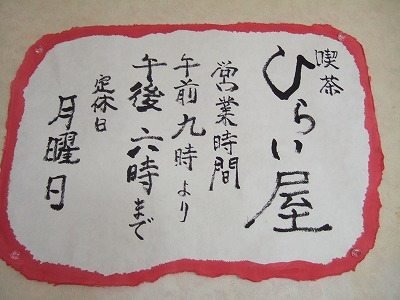 喫茶
ひらい屋
営業時間
午前九時より
午後六時まで
定休日
月曜日